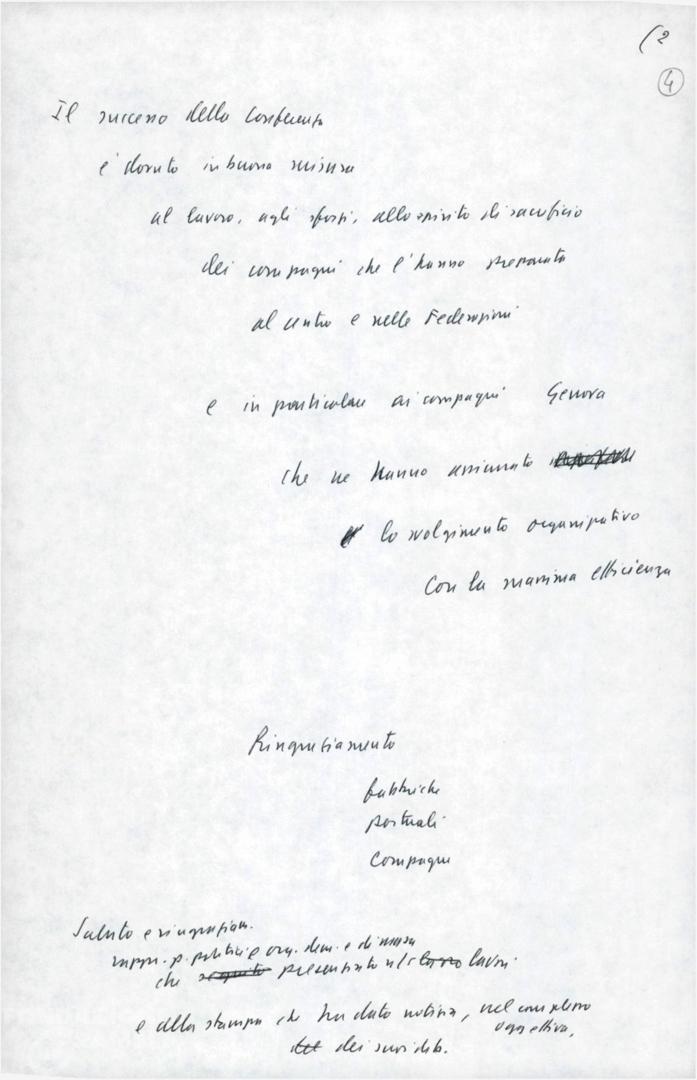 (2
4
Il successo della Conferenza
è dovuto in buona misura
al lavoro, agli sforzi, allo spirito di sacrificio
dei compagni che l'hanno preparata
al centro e nelle Federazioni
e in particolare ai compagni Genova
che ne hanno assicurato
lo svolgimento organizzativo
con la massima efficienza
Ringraziamento
fabbriche
portuali
compagni
Saluto e ringraziam.
rappr. p. politici e org. dem. e di massa
che seguito presenziato lavori
e della stampa che ha dato notizia, nel complesso
oggettiva,
dei suoi dib.